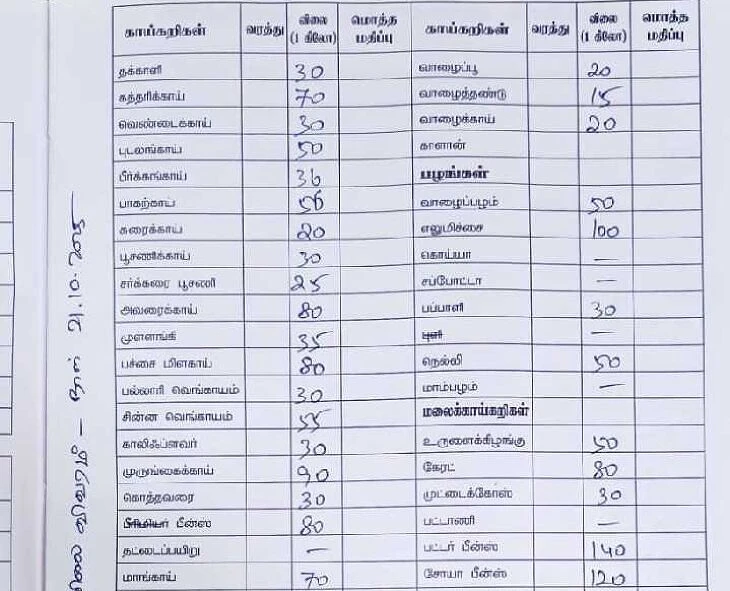 காய்கறிகள் வரத்து விலை (1 கிலோ) மொத்த மதிப்பு காய்கறிகள் வரத்து விலை (1 கிலோ) மொத்த மதிப்பு
தக்காளி 30 வாழைப்பூ 20
கத்தரிக்காய் 70 வாழைத்தண்டு 15
வெண்டைக்காய் 30 வாழைக்காய் 20
புடலங்காய் 50 காளான்
பீர்க்கங்காய் 36 பழங்கள்
பாகற்காய் வாழைப்பழம் 50
சுரைக்காய் 20 எலுமிச்சை 100
பூசணிக்காய் 30 கொய்யா —
சர்க்கரை பூசணி 25 சப்போட்டா —
அவரைக்காய் 80 பப்பாளி 30
முள்ளங்கி 35 புளி —
பச்சை மிளகாய் 80 நெல்லி 50
பல்லாரி வெங்காயம் 30 மாம்பழம் —
சின்ன வெங்காயம் 55 மலைக்காய்கறிகள்
காலிஃப்ளவர் 30 உருளைக்கிழங்கு 50
முருங்கைக்காய் 90 கேரட் 80
கொத்தவரை 30 முட்டைக்கோஸ் 30
பிரிமியர் பீன்ஸ் 80 பட்டாணி —
தட்டைப்பயிறு — பட்டர் பீன்ஸ் 140
மாங்காய் 70 சோயா பீன்ஸ் 120
விலை விவரம் — நாள் 21.10.2025